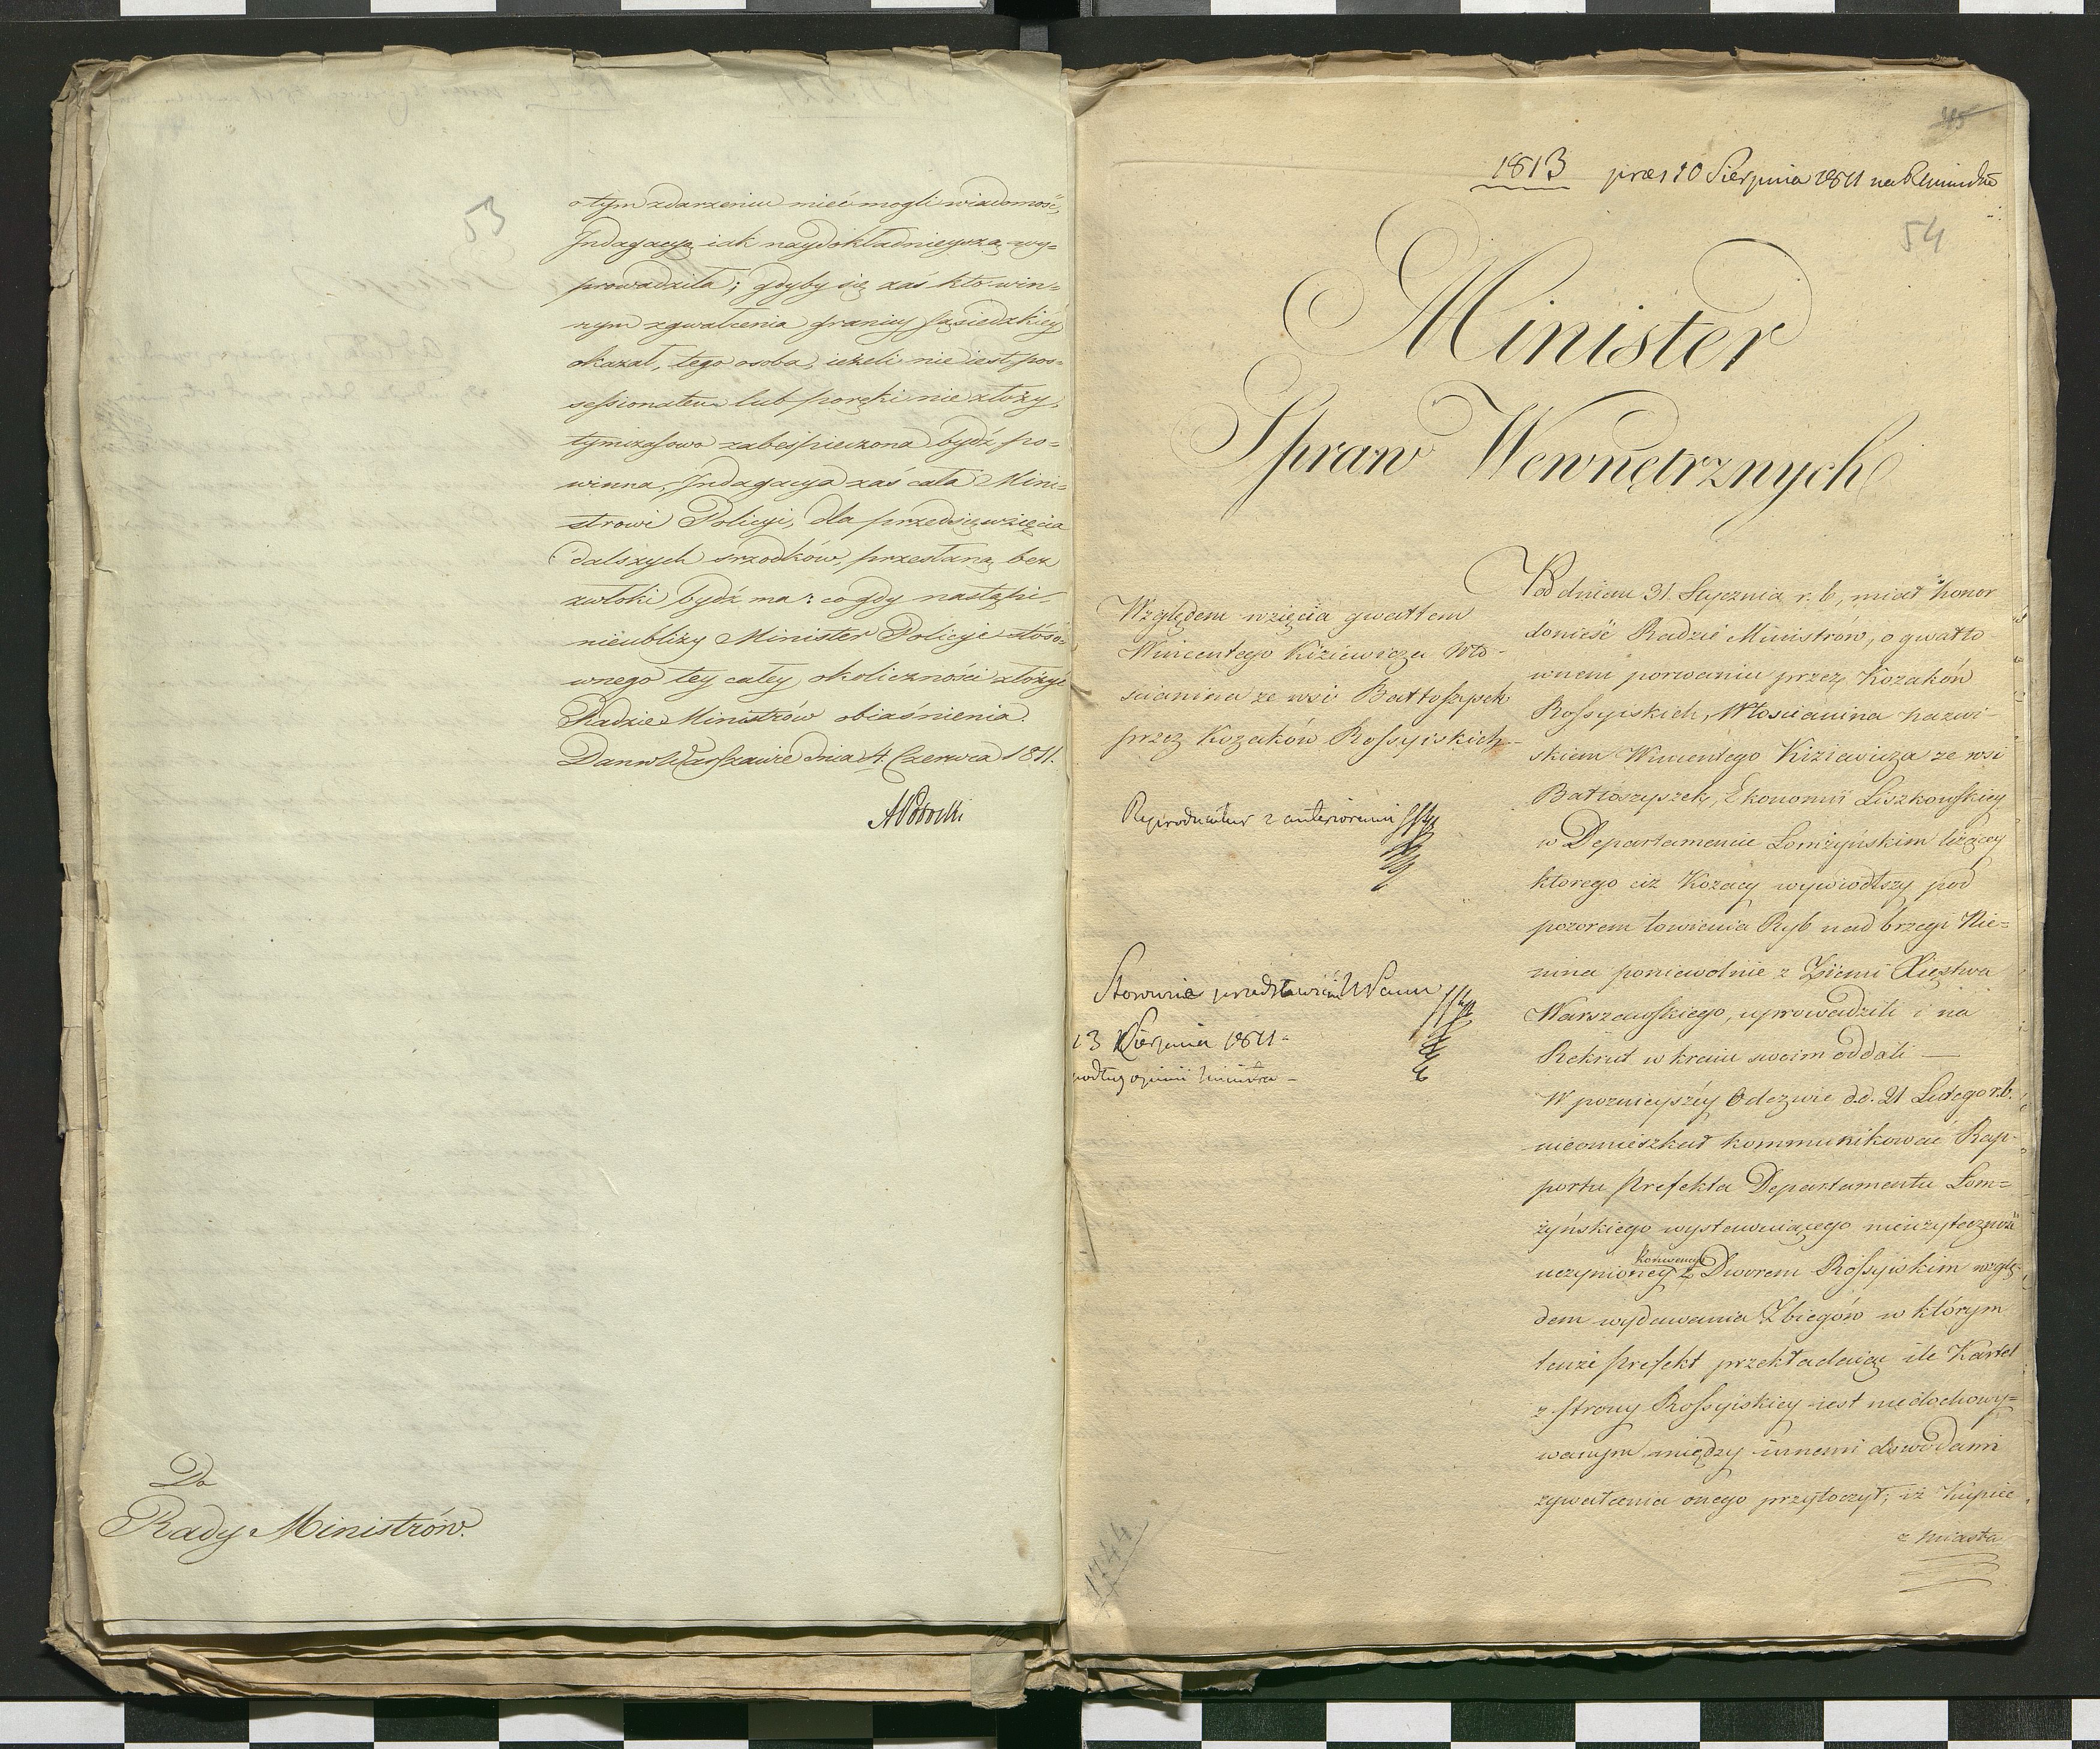 53
o tym zdarzeniu mieć mogli wiadomość,
Indagacyą iak naydokładnieyszą wy=
prowadziła; gdyby się zaś kto win=
nym zgwałcenia granicy sąsiedzkiey
okazał, tego osoba, ieżeli nie iest pos=
sessionatem lub poręki nie złoży,
tymczasowo zabespieczona bydź po=
winna, Indagacya zaś cała Mini=
strowi Policyi, dla przedsięwzięcia
dalszych srzodków, przesłaną bez
zwłoki bydź ma: co gdy nastąpi,
nieubliży Minister Policyi stóso=
wnego tey całey okoliczności złożyć
Radzie Ministrów obiaśnienia.
Dan w Warszawie dnia 4 Czerwca 1811.
Do
Rady Ministrów.
1813 præs 10 Sierpnia 1811 na
54
Minister
Spraw Wewnętrznych
Względem wzięcia gwałtem
Wincentego Kiziewicza Wło-
scianina ze wsi
przez Kozaków Rossyiskich
Reproducatur z anterioribus
Stosownie przedstawienie
13 Sierpnia 1811-
podług opinii Ministra-
Pod dniem 31. Stycznia r. b, miał honor
donieść Radzie Ministrów, o gwałto
wnem porwaniu przez Kozaków
Rossyiskich, Włoscianina nazwi-
skiem Wincentego Kiziewicza ze wsi
Bałtoszyszek, Ekonomii Liszkowskiey
w Departamencie Łomżyńskim leżącey
ktorego ciż Kozacy wywiodłszy pod
pozorem łowienia Ryb nad brzegi Nie=
mna poniewolnie z Ziemi Xięstwa
Warszawskiego, uprowadzili i na
Rekrut w kraiu swoim oddali —
W poznieyszéy Odezwie d.d. 21 Lutego r.b.
nieomieszkał kommunikować Rap-
portu Prefekta Departamentu Łom=
żyńskiego wystawuiącego nieużyteczność
Konwencyi
uczynioney z Dworem Rossyiskim wzglę-
dem wydawania Zbiegów w którym
tenże Prefekt przekładaiąc ile Kartel
z strony Rossyiskiey iest niedochowy=
wanym między innemi dowodami
zgwałcenia onego przytoczył; iż kupiec
z miasta
1244